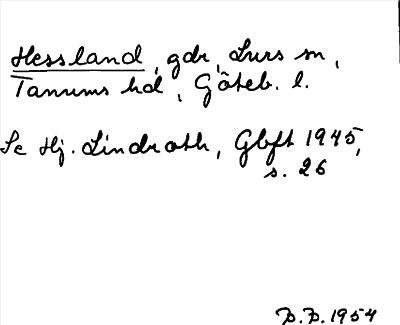 Hessland, gdr, Lurs sn,
Tanums hd, Göteb. l.
Se Hj. Lindroth, Gbft 1945,
s. 26
P.P. 1954